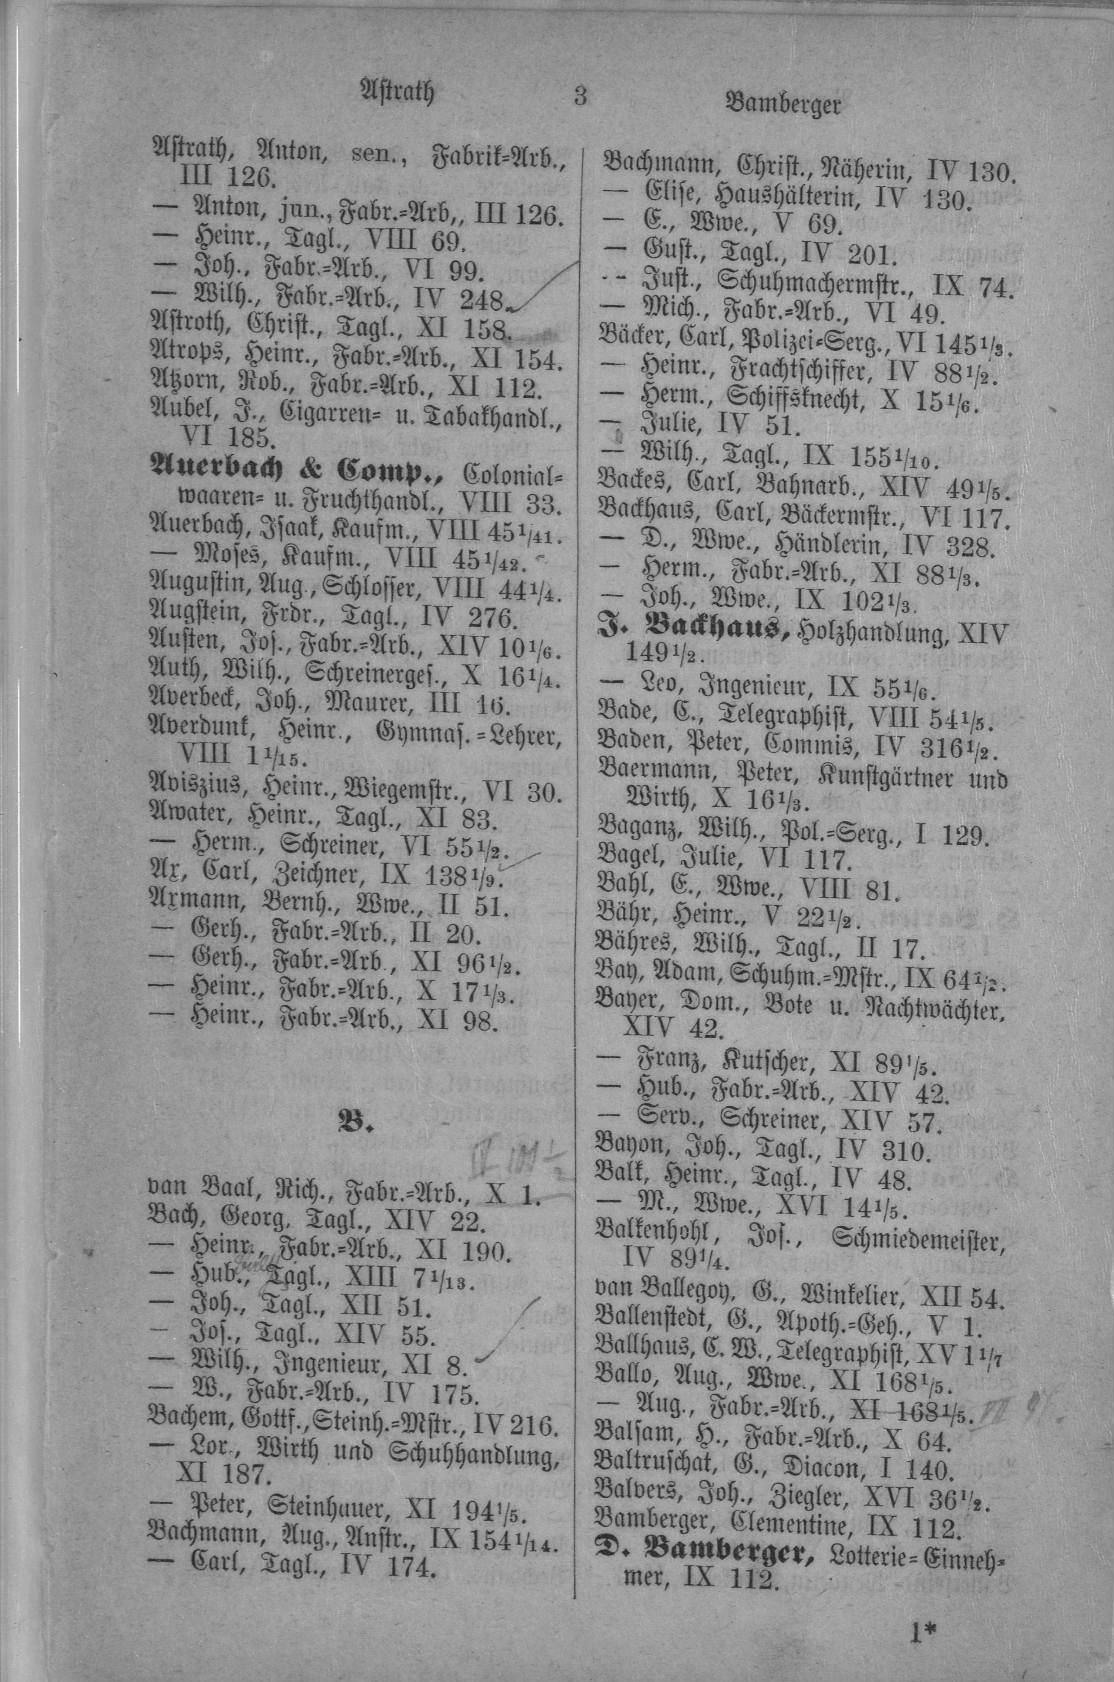 Astrath 3 Bamberger
Astrath, Anton, sen., Fabrik=Arb.,
III 126.
— Anton, jun., Fabr.=Arb,, III 126.
— Heinr., Tagl., VIII 69.
— Joh., Fabr.=Arb., VI 99.
— Wilh., Fabr.=Arb., IV 248.
Astroth, Christ., Tagl., XI 158.
Atrops, Heinr., Fabr.=Arb., XI 154.
Atzorn, Rob., Fabr.=Arb., XI 112.
Aubel, J., Cigarren= u. Tabakhandl.,
VI 185.
Auerbach & Comp., Colonial=
waaren= u. Fruchthandl., VIII 33.
Auerbach, Isaak, Kaufm., VIII 45 1/41.
— Moses, Kaufm., VIII 45 1/42.
Augustin, Aug., Schlosser, VIII 44 1/4.
Augstein, Frdr., Tagl., IV 276.
Austen, Jos., Fabr.=Arb., XIV 10 1/6.
Auth, Wilh., Schreinerges., X 16 1/4.
Averbeck, Joh., Maurer, III 16.
Averdunk, Heinr., Gymnas.=Lehrer,
VIII 1 1/15.
Aviszius, Heinr., Wiegemstr., VI 30.
Awater, Heinr., Tagl., XI 83.
— Herm., Schreiner, VI 55 1/2.
Ax, Carl, Zeichner, IX 138 1/9.
Axmann, Bernh., Wwe., II 51.
— Gerh., Fabr.=Arb., II 20.
— Gerh., Fabr.=Arb., XI 96 1/2.
— Heinr., Fabr.=Arb., X 17 1/3.
— Heinr., Fabr.=Arb., XI 98.
B.
van Baal, Rich., Fabr.=Arb., X 1.
Bach, Georg, Tagl., XIV 22.
— Heinr., Fabr.=Arb., XI 190.
— Hub., Tagl., XIII 7 1/13.
— Joh., Tagl., XII 51.
— Jos., Tagl., XIV 55.
— Wilh., Ingenieur, XI 8.
— W., Fabr.=Arb., IV 175.
Bachem, Gottf., Steinh.=Mstr., IV 216.
— Lor., Wirth und Schuhhandlung,
XI 187.
— Peter, Steinhauer, XI 194 1/5.
Bachmann, Aug., Anstr., IX 154 1/14.
— Carl, Tagl., IV 174.
Bachmann, Christ., Näherin, IV 130.
— Elise, Haushälterin, IV 130.
— E., Wwe., V 69.
— Gust., Tagl., IV 201.
— Just., Schuhmachermstr., IX 74.
— Mich., Fabr.=Arb., VI 49.
Bäcker, Carl, Polizei=Serg., VI 145 1/3.
— Heinr., Frachtschiffer, IV 88 1/2.
— Herm., Schiffsknecht, X 15 1/6.
— Julie, IV 51.
— Wilh., Tagl., IX 155 1/10.
Backes, Carl, Bahnarb., XIV 49 1/5.
Backhaus, Carl, Bäckermstr., VI 117.
— D., Wwe., Händlerin, IV 328.
— Herm., Fabr.=Arb., XI 88 1/3.
— Joh., Wwe., IX 102 1/3.
J. Backhaus, Holzhandlung, XIV
149 1/2.
— Leo, Ingenieur, IX 55 1/6.
Bade, C., Telegraphist, VIII 54 1/5.
Baden, Peter, Commis, IV 316 1/2.
Baermann, Peter, Kunstgärtner und
Wirth, X 16 1/3.
Baganz, Wilh., Pol.=Serg., I 129.
Bagel, Julie, VI 117.
Bahl, E., Wwe., VIII 81.
Bähr, Heinr., V 22 1/2.
Bähres, Wilh., Tagl., II 17.
Bay, Adam, Schuhm.=Mstr., IX 64 1/2.
Bayer, Dom., Bote u. Nachtwächter,
XIV 42.
— Franz, Kutscher, XI 89 1/5.
— Hub., Fabr.=Arb., XIV 42.
— Serv., Schreiner, XIV 57.
Bayon, Joh., Tagl., IV 310.
Balk, Heinr., Tagl., IV 48.
— M., Wwe., XVI 14 1/5.
Balkenhohl, Jos., Schmiedemeister,
IV 89 1/4.
van Ballegoy, G., Winkelier, XII 54.
Ballenstedt, G., Apoth.=Geh., V 1.
Ballhaus, C. W., Telegraphist, XV 1 1/7
Ballo, Aug., Wwe., XI 168 1/5.
— Aug., Fabr.=Arb., XI 168 1/5.
Balsam, H., Fabr.=Arb., X 64.
Baltruschat, G., Diacon, I 140.
Balvers, Joh., Ziegler, XVI 36 1/2.
Bamberger, Clementine, IX 112.
D. Bamberger, Lotterie=Einneh=
mer, IX 112.
1*